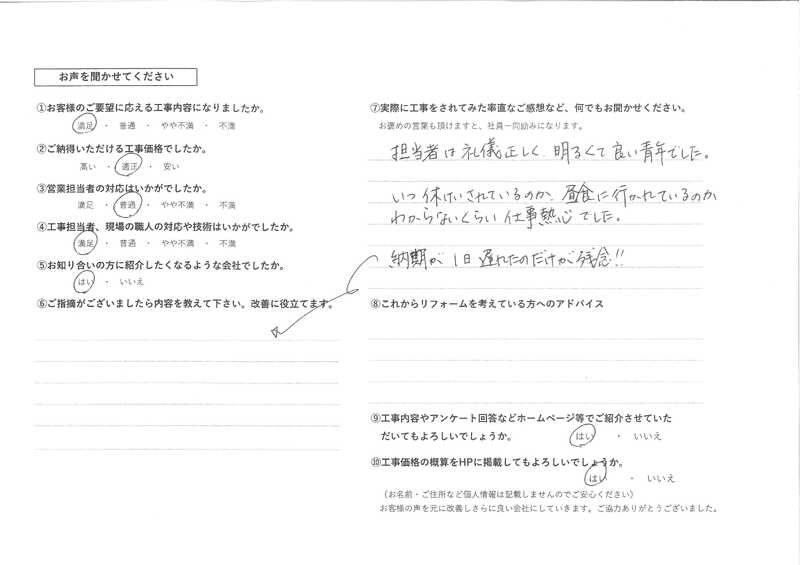 お声を聞かせてください
①お客様のご要望に応える工事内容になりましたか。
満足 ・ 普通 ・ やや不満 ・ 不満
②ご納得いただける工事価格でしたか。
高い ・ 適正 ・ 安い
③営業担当者の対応はいかがでしたか。
満足 ・ 普通 ・ やや不満 ・ 不満
④工事担当者、現場の職人の対応や技術はいかがでしたか。
満足 ・ 普通 ・ やや不満 ・ 不満
⑤お知り合いの方に紹介したくなるような会社でしたか。
はい ・ いいえ
⑥ご指摘がございましたら内容を教えて下さい。改善に役立てます。
⑦実際に工事をされてみた率直なご感想など、何でもお聞かせください。
お褒めの言葉も頂けますと、社員一同励みになります。
担当者は礼儀正しく 明るくて良い青年でした。
いつ休けいされているのか、昼食に行かれているのか
わからないくらい 仕事熱心でした。
納期が 1日 遅れたのだけが残念!!
⑧これからリフォームを考えている方へのアドバイス
⑨工事内容やアンケート回答などホームページ等でご紹介させていた
だいてもよろしいでしょうか。 はい ・ いいえ
⑩工事価格の概算をHPに掲載してもよろしいでしょうか。
はい ・ いいえ
（お名前・ご住所など個人情報は記載しませんのでご安心ください）
お客様の声を元に改善しさらに良い会社にしていきます。ご協力ありがとうございました。